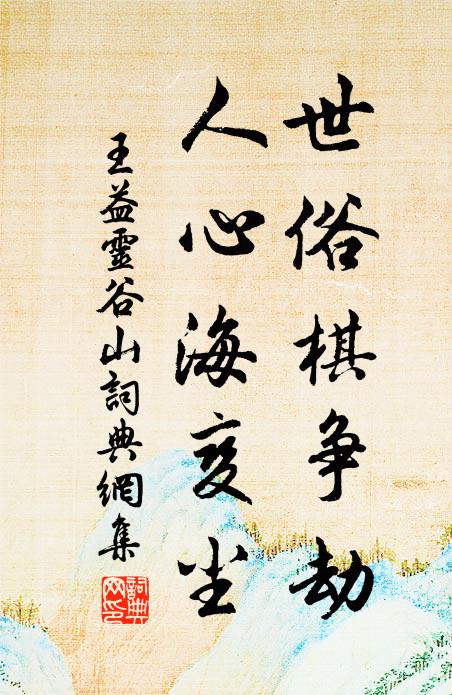 世俗棋争劫
人心海变尘
王益靈谷山詞典網集
詞典
网印